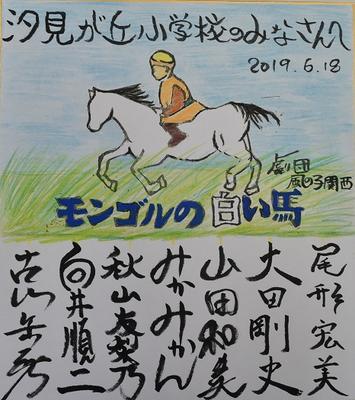 汐見が丘小学校のみなさんへ
2019.6.18
劇団
風の子関西
モンゴルの白い馬
尾形宏美
大田剛史
山田和美
みかみかん
秋山友梨乃
向井順二